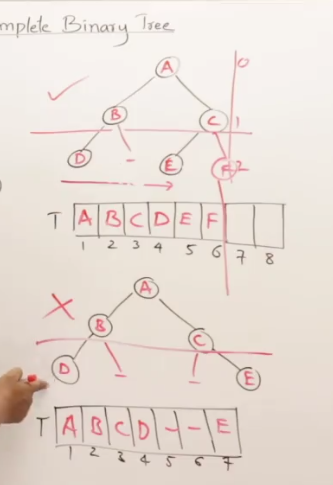 mplete Binary Tree
A
0
B
C
1
D
-
E
F
2
T A B C D E F
1 2 3 4 5 6 7 8
A
B
C
D
-
-
E
T A B C D - - E
1 2 3 4 5 6 7